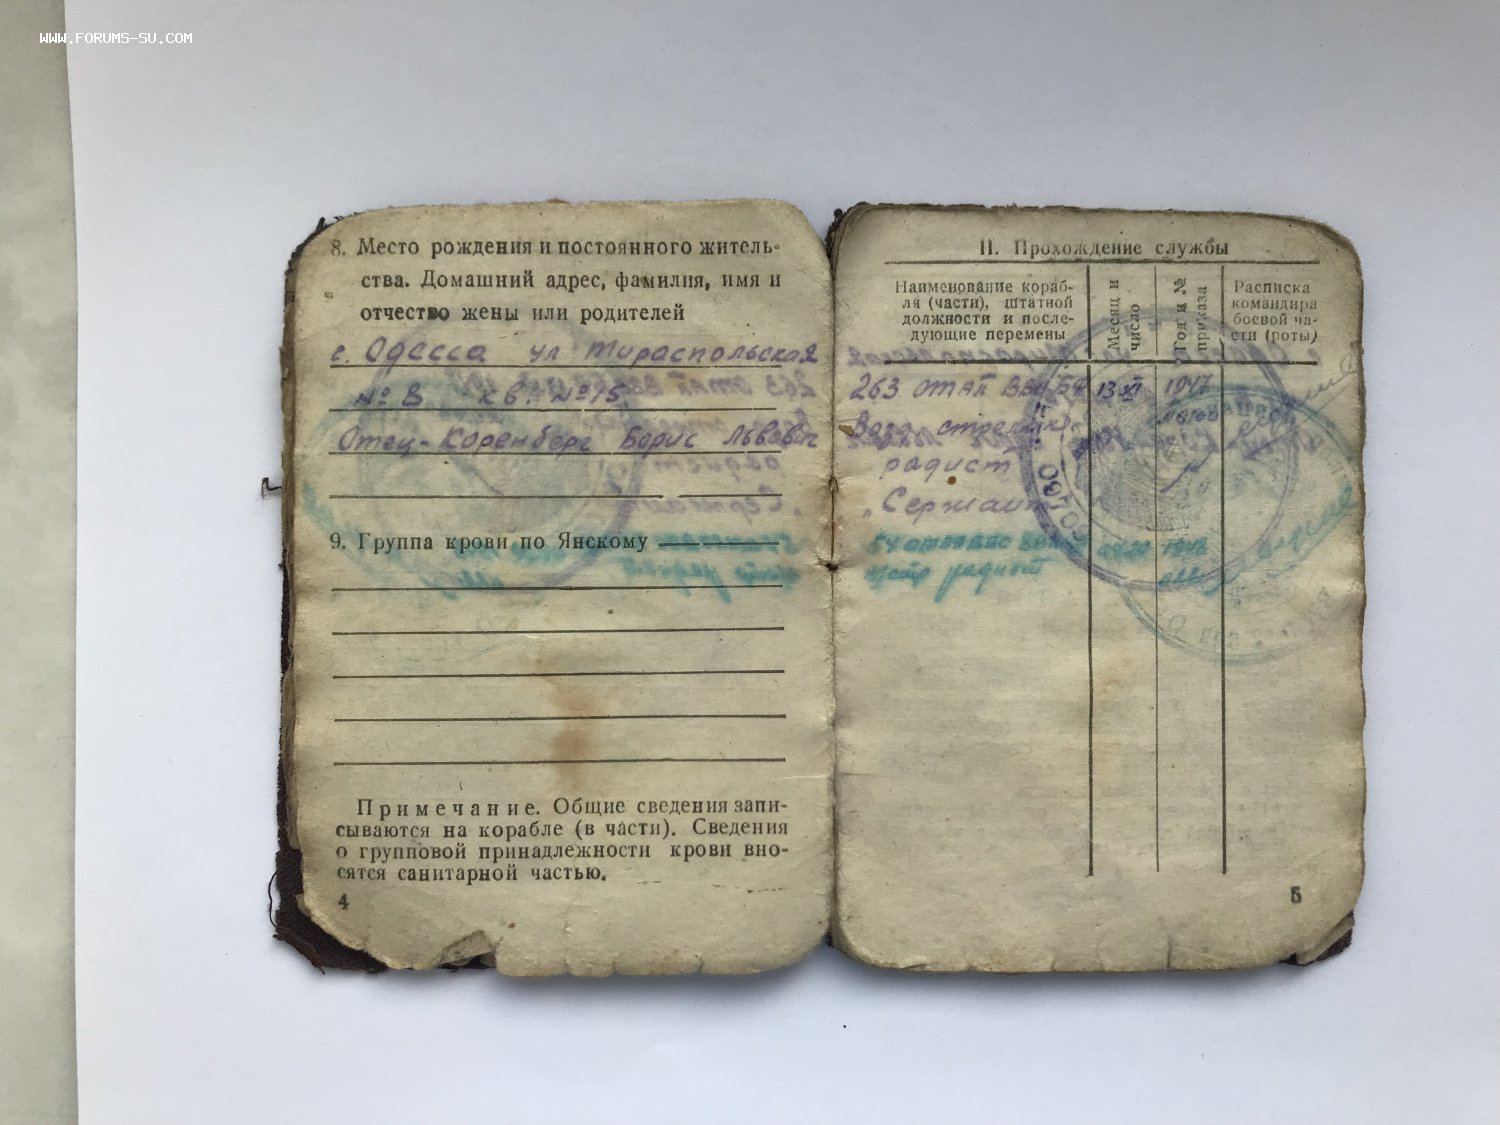 WWW.FORUMS-SU.COM
8. Место рождения и постоянного житель-
ства. Домашний адрес, фамилия, имя и
отчество жены или родителей
г. Одесса ул Тираспольская
№ 8 кв. № 15
Отец - Коренберг Борис Львович
9. Группа крови по Янскому
Примечание. Общие сведения запи-
сываются на корабле (в части). Сведения
о групповой принадлежности крови вно-
сятся санитарной частью.
4
II. Прохождение службы
Наименование кораб-
ля (части), штатной
должности и после-
дующие перемены
Месяц и
число
Год и №
приказа
Расписка
командира
боевой ча-
сти (роты)
263 ОТАП ВВС 13-XI 1947
стрелок
радист
"Сержант
радист
5